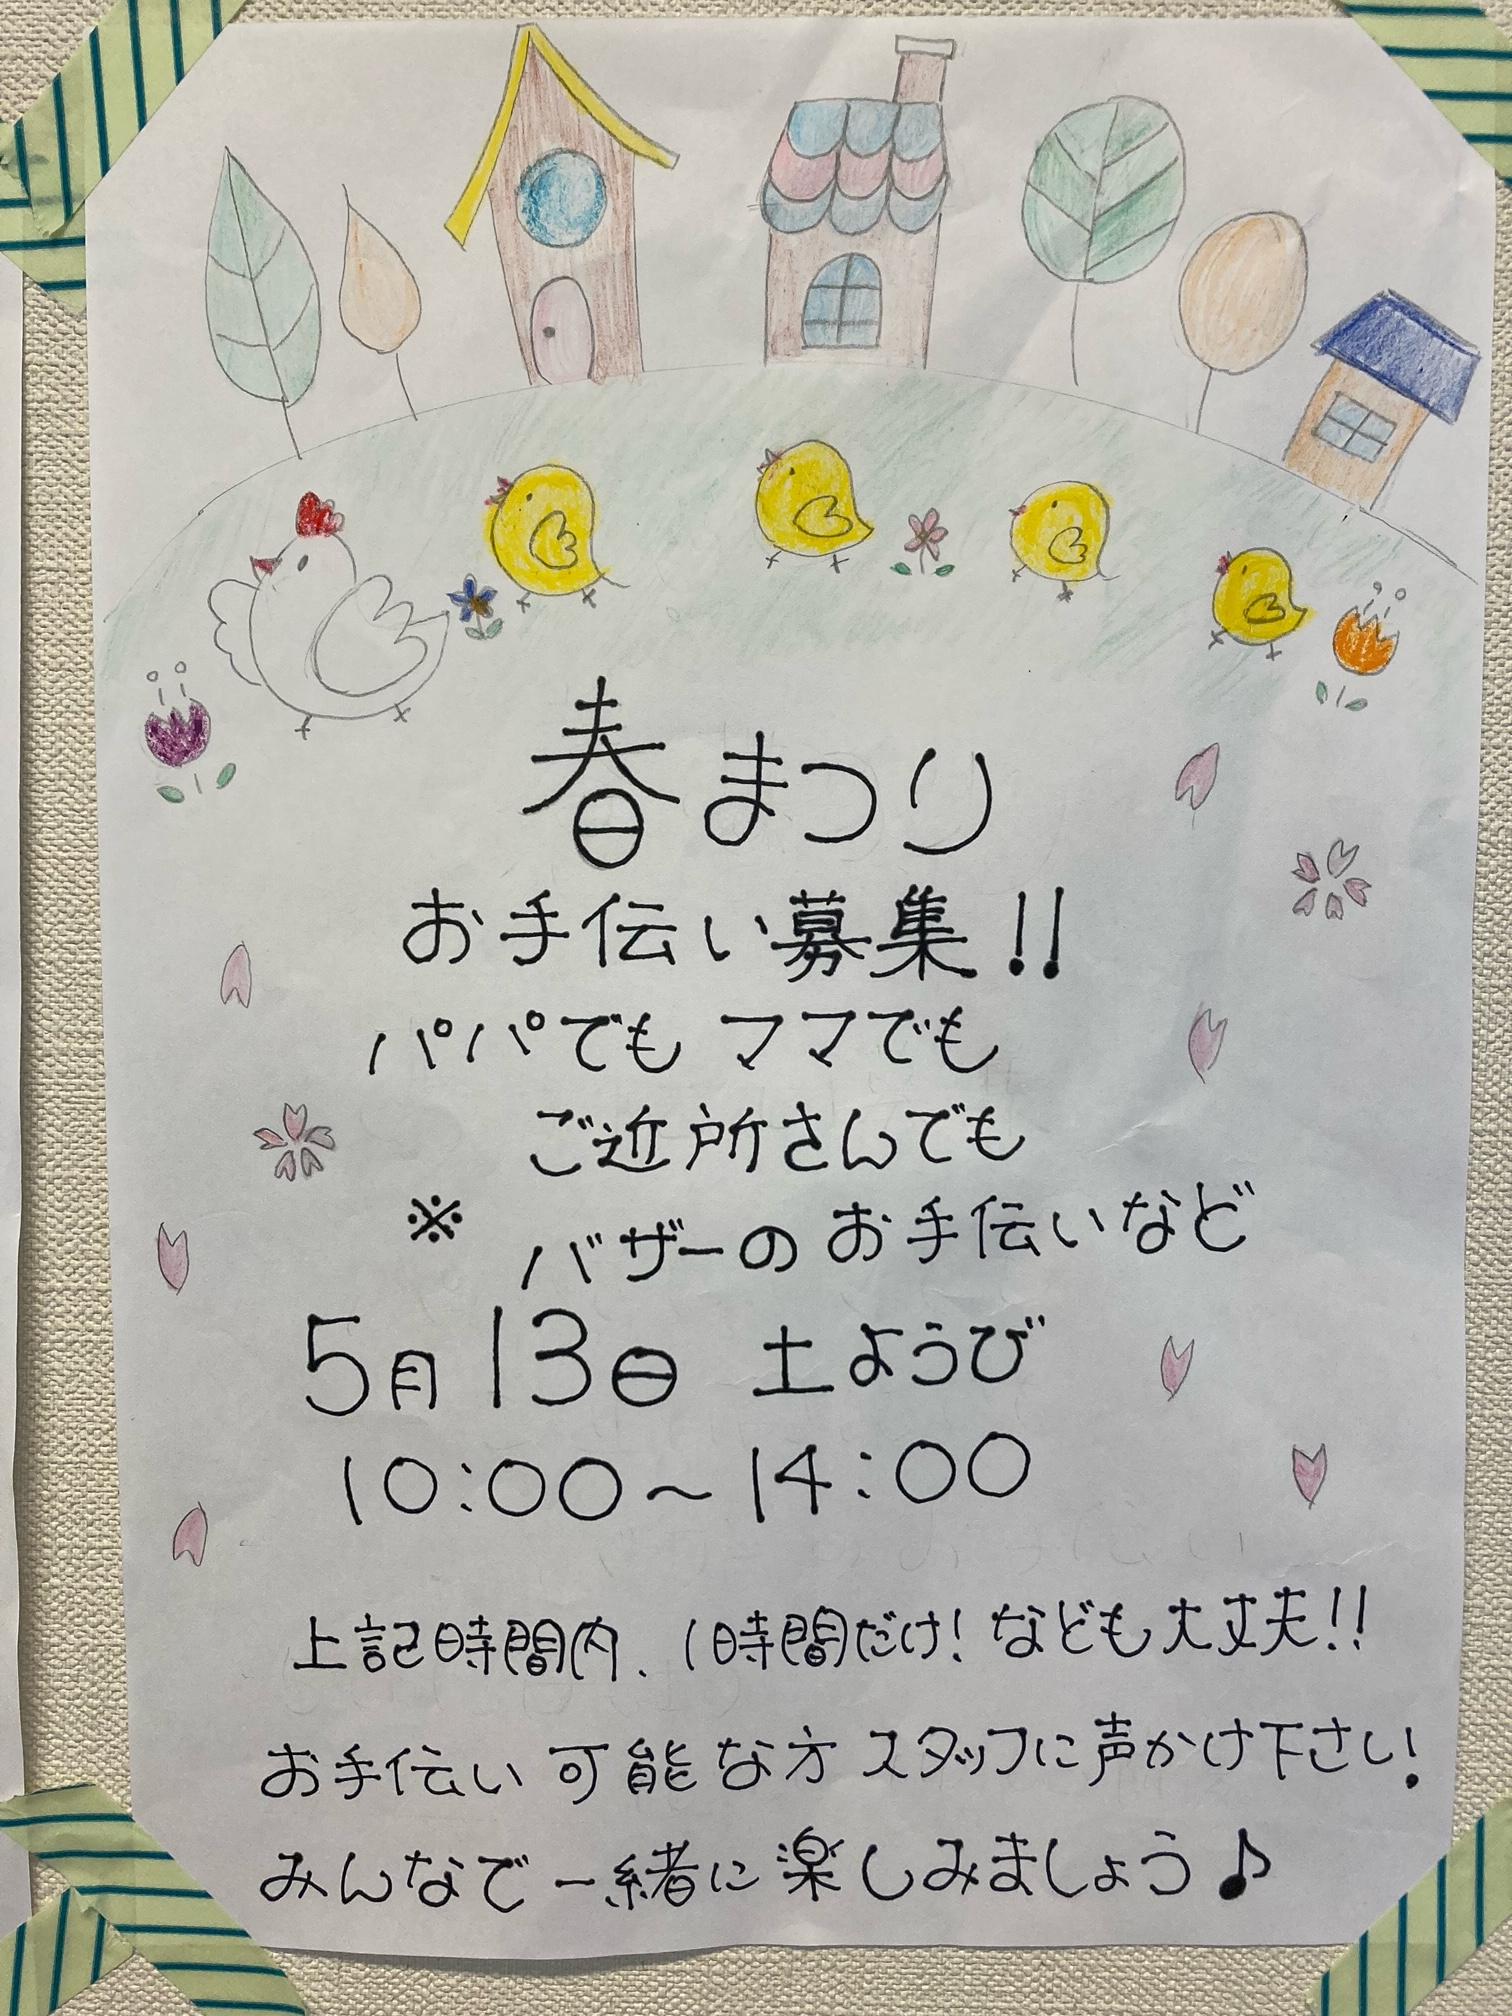 春まつり
お手伝い募集!!
パパでも ママでも
ご近所さんでも
※ バザーのお手伝いなど
5月13日 土ようび
10:00～14:00
上記時間内、1時間だけ!なども大丈夫!!
お手伝い可能な方 スタッフに声かけ下さい!
みんなで一緒に楽しみましょう♪